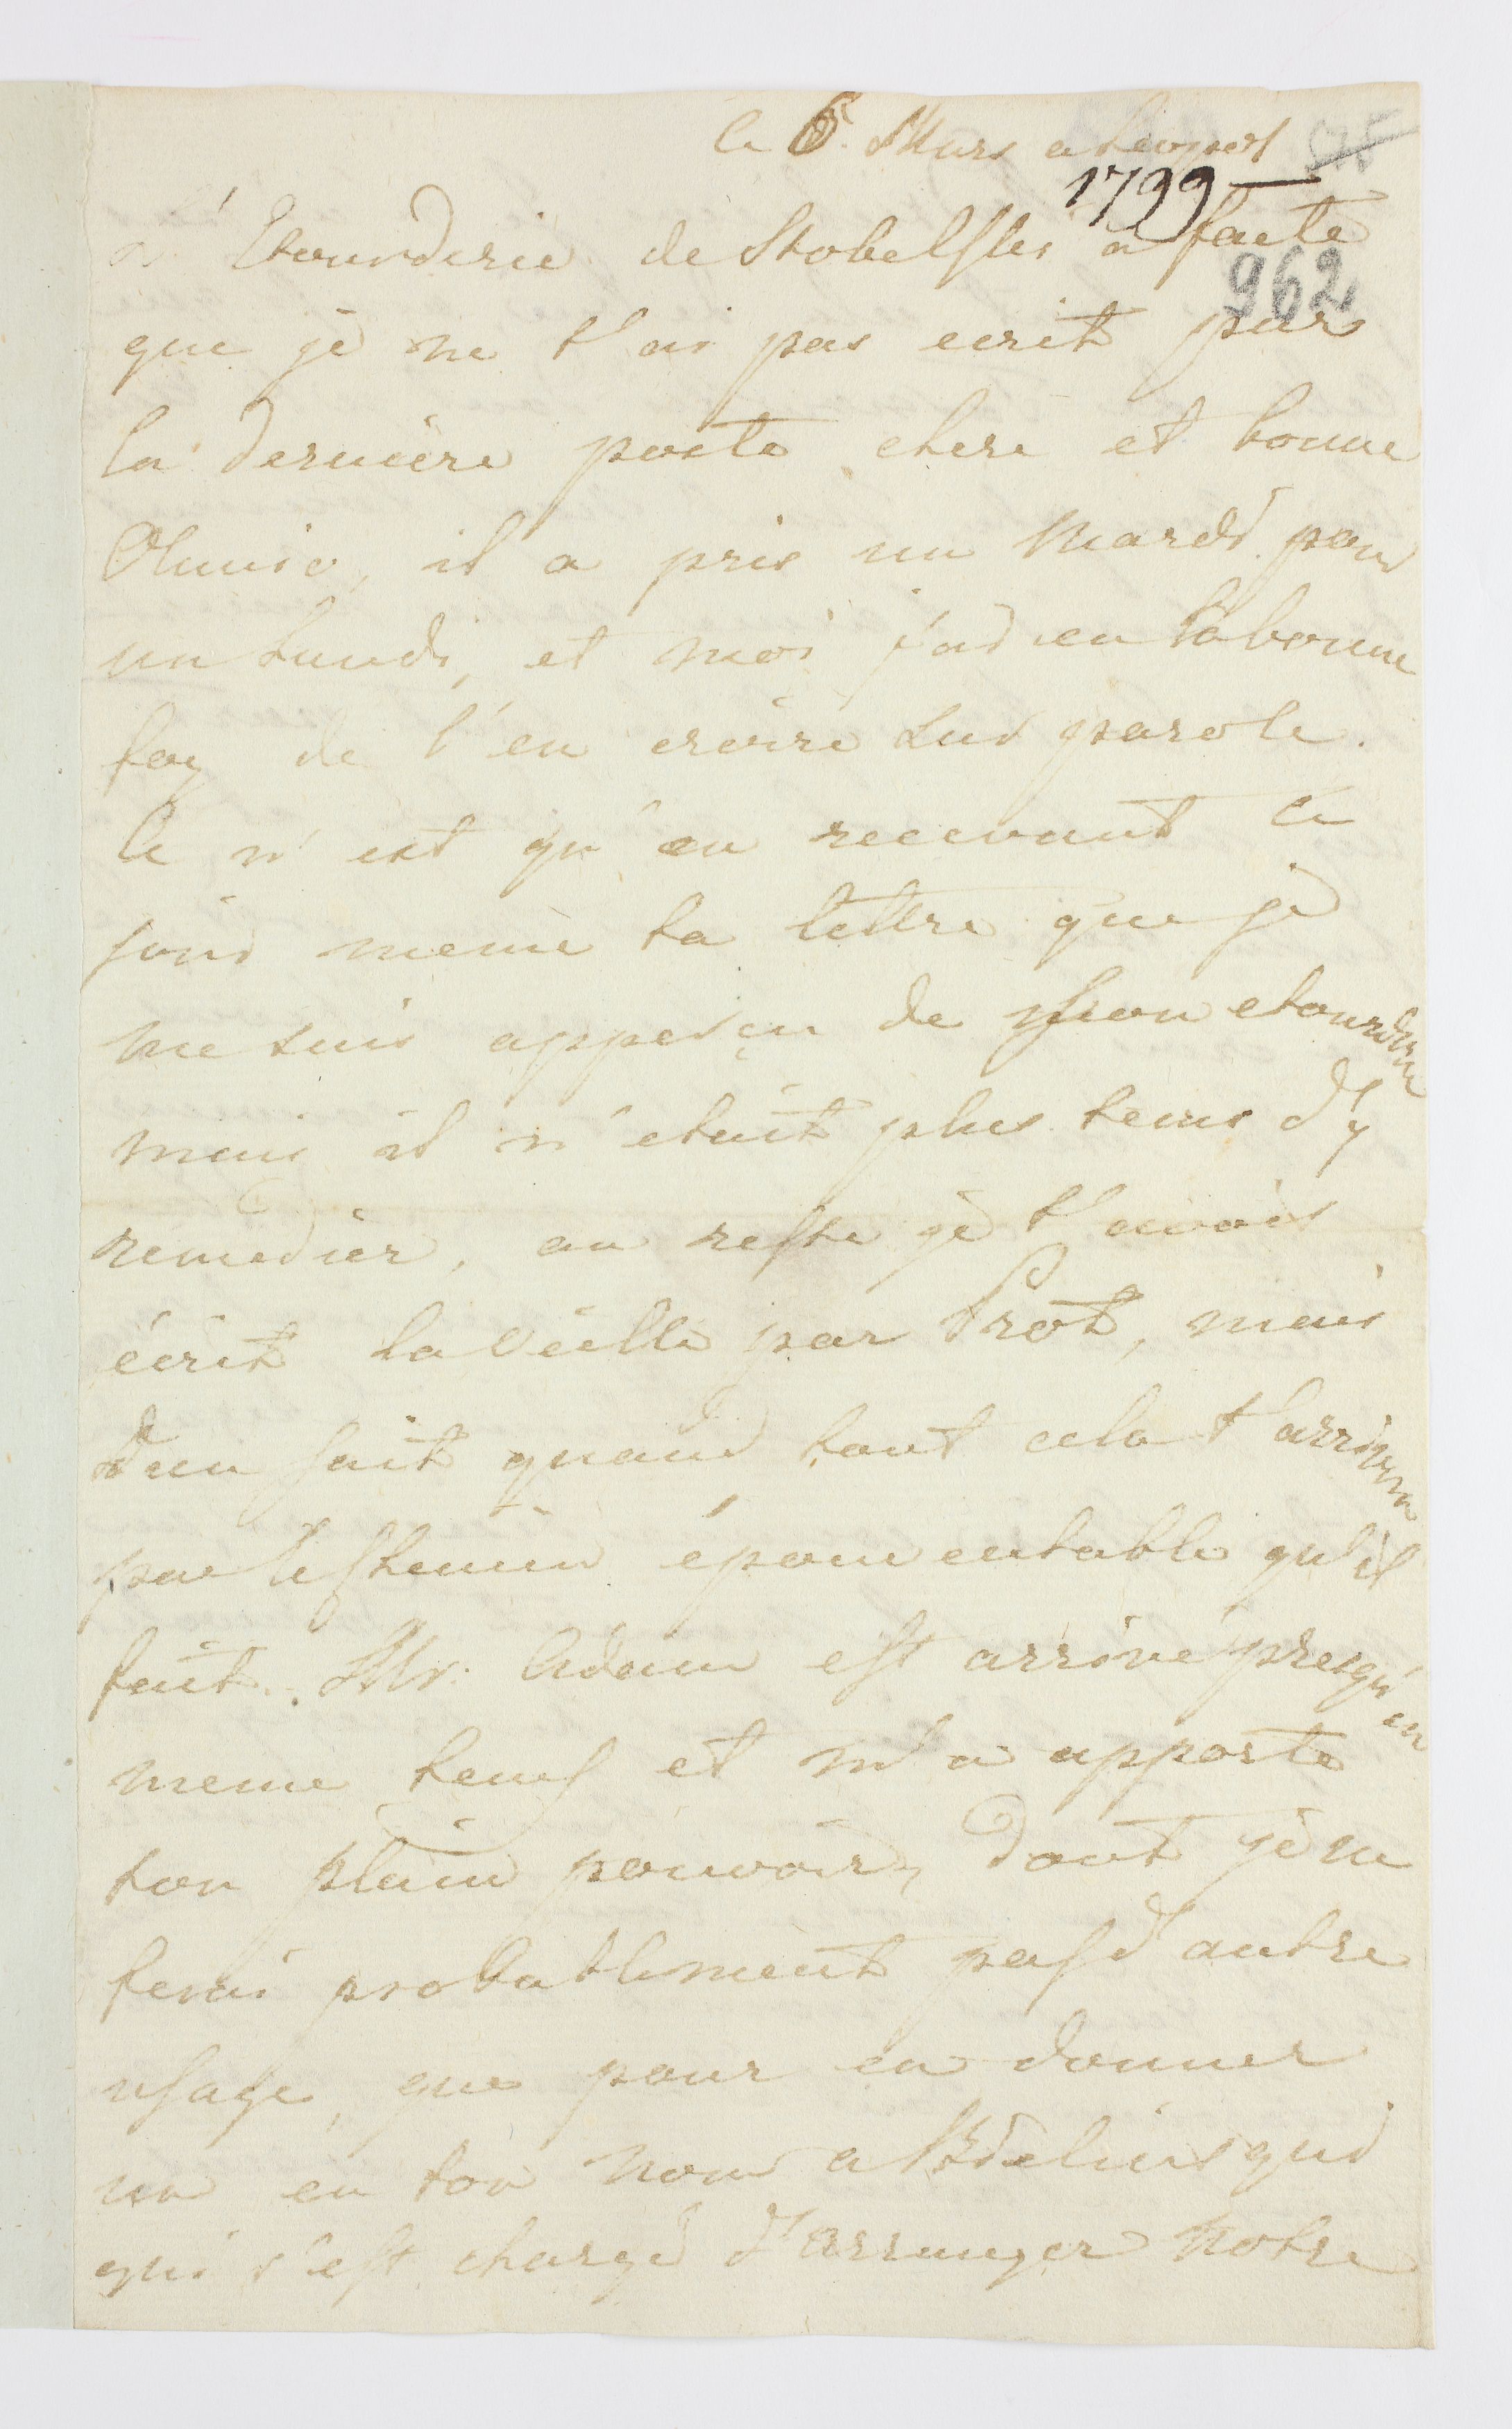 le 6. Mars a Leopol
1799
962
L'Etourderie de Stobelsky a faite
que je ne t'ai pas ecrit par
la derniere poste chere et bonne
Amie, il a pris un Mardi pour
un Lundi, et moi j'ai eu la bonne
foy de l'en croire sur parole.
Ce n'est qu'en recevant ce
soir meme ta lettre que je
me suis apperçu de son etourderie
mais il n'etait plus tems d'y
remedier, au reste je t'avais
écrit la veille par Prot, mais
Dieu sait quand tout cela t'arrivera
par le tems épouventable qu'il
fait. Mr. Adam est arrivé presqu'en
meme tems et m'a apporte
ton plein pouvoir, dont je ne
ferai probablement pas d'autre
usage, que pour en donner
un en ton nom a qui
qui s'est chargé d'arranger notre